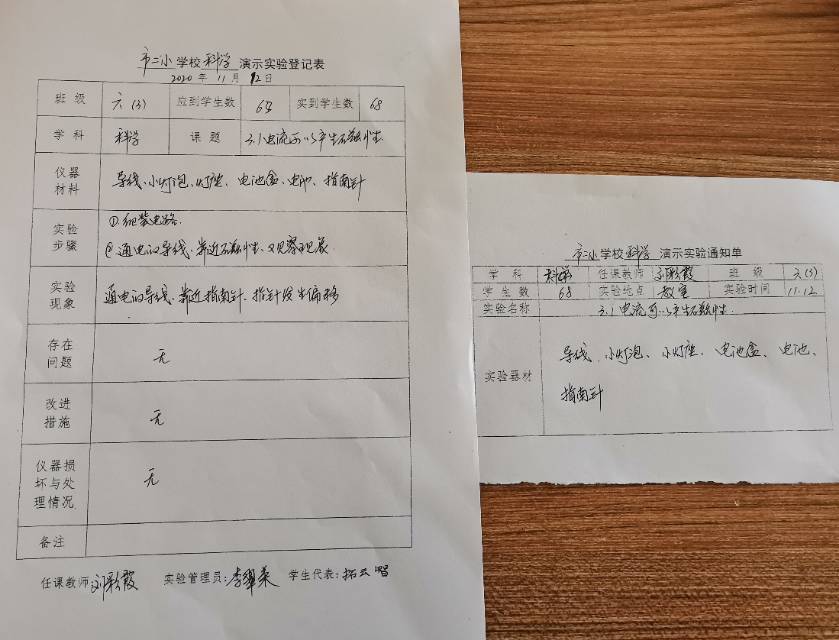 市二小学校科学演示实验登记表
2020年11月12日
班级 六(3) 应到学生数 68 实到学生数 68
学科 科学 课题 3.1电流可以产生磁性
仪器材料 导线、小灯泡、灯座、电池盒、电池、指南针
实验步骤 ①组装电路.
②通电的导线.靠近磁性.观察现象.
实验现象 通电的导线.靠近指南针.指针发生偏移
存在问题 无
改进措施 无
仪器损坏与处理情况 无
备注
任课教师:刘彩霞 实验管理员:李翠荣 学生代表:拓云
市二小学校科学演示实验通知单
学科 科学 任课教师 刘彩霞 班级
学生数 68 实验地点 教室 实验时间 11.12
实验名称 3.1电流可以产生磁性.
实验器材 导线、小灯泡、小灯座、电池盒、电池、
指南针